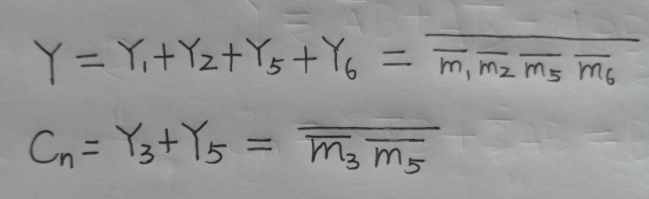 Y = Y₁+Y₂+Y₅+Y₆ = \overline{\overline{m}_1 \overline{m}_2 \overline{m}_5 \overline{m}_6}
Cₙ = Y₃+Y₅ = \overline{\overline{m}_3 \overline{m}_5}